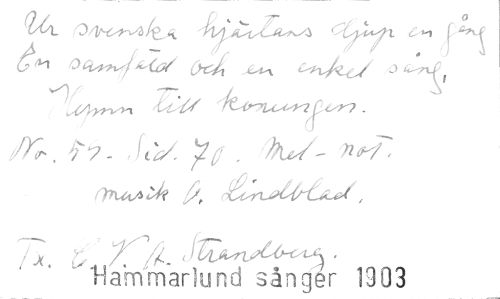 Ur svenska hjärtans djup en gång
En samfäld och en enkel sång,
Hymn till konungen.
No. 57. Sid. 70. Mel-not.
musik O. Lindblad.
Tx. C V A. Strandberg.
Hammarlund sånger 1903